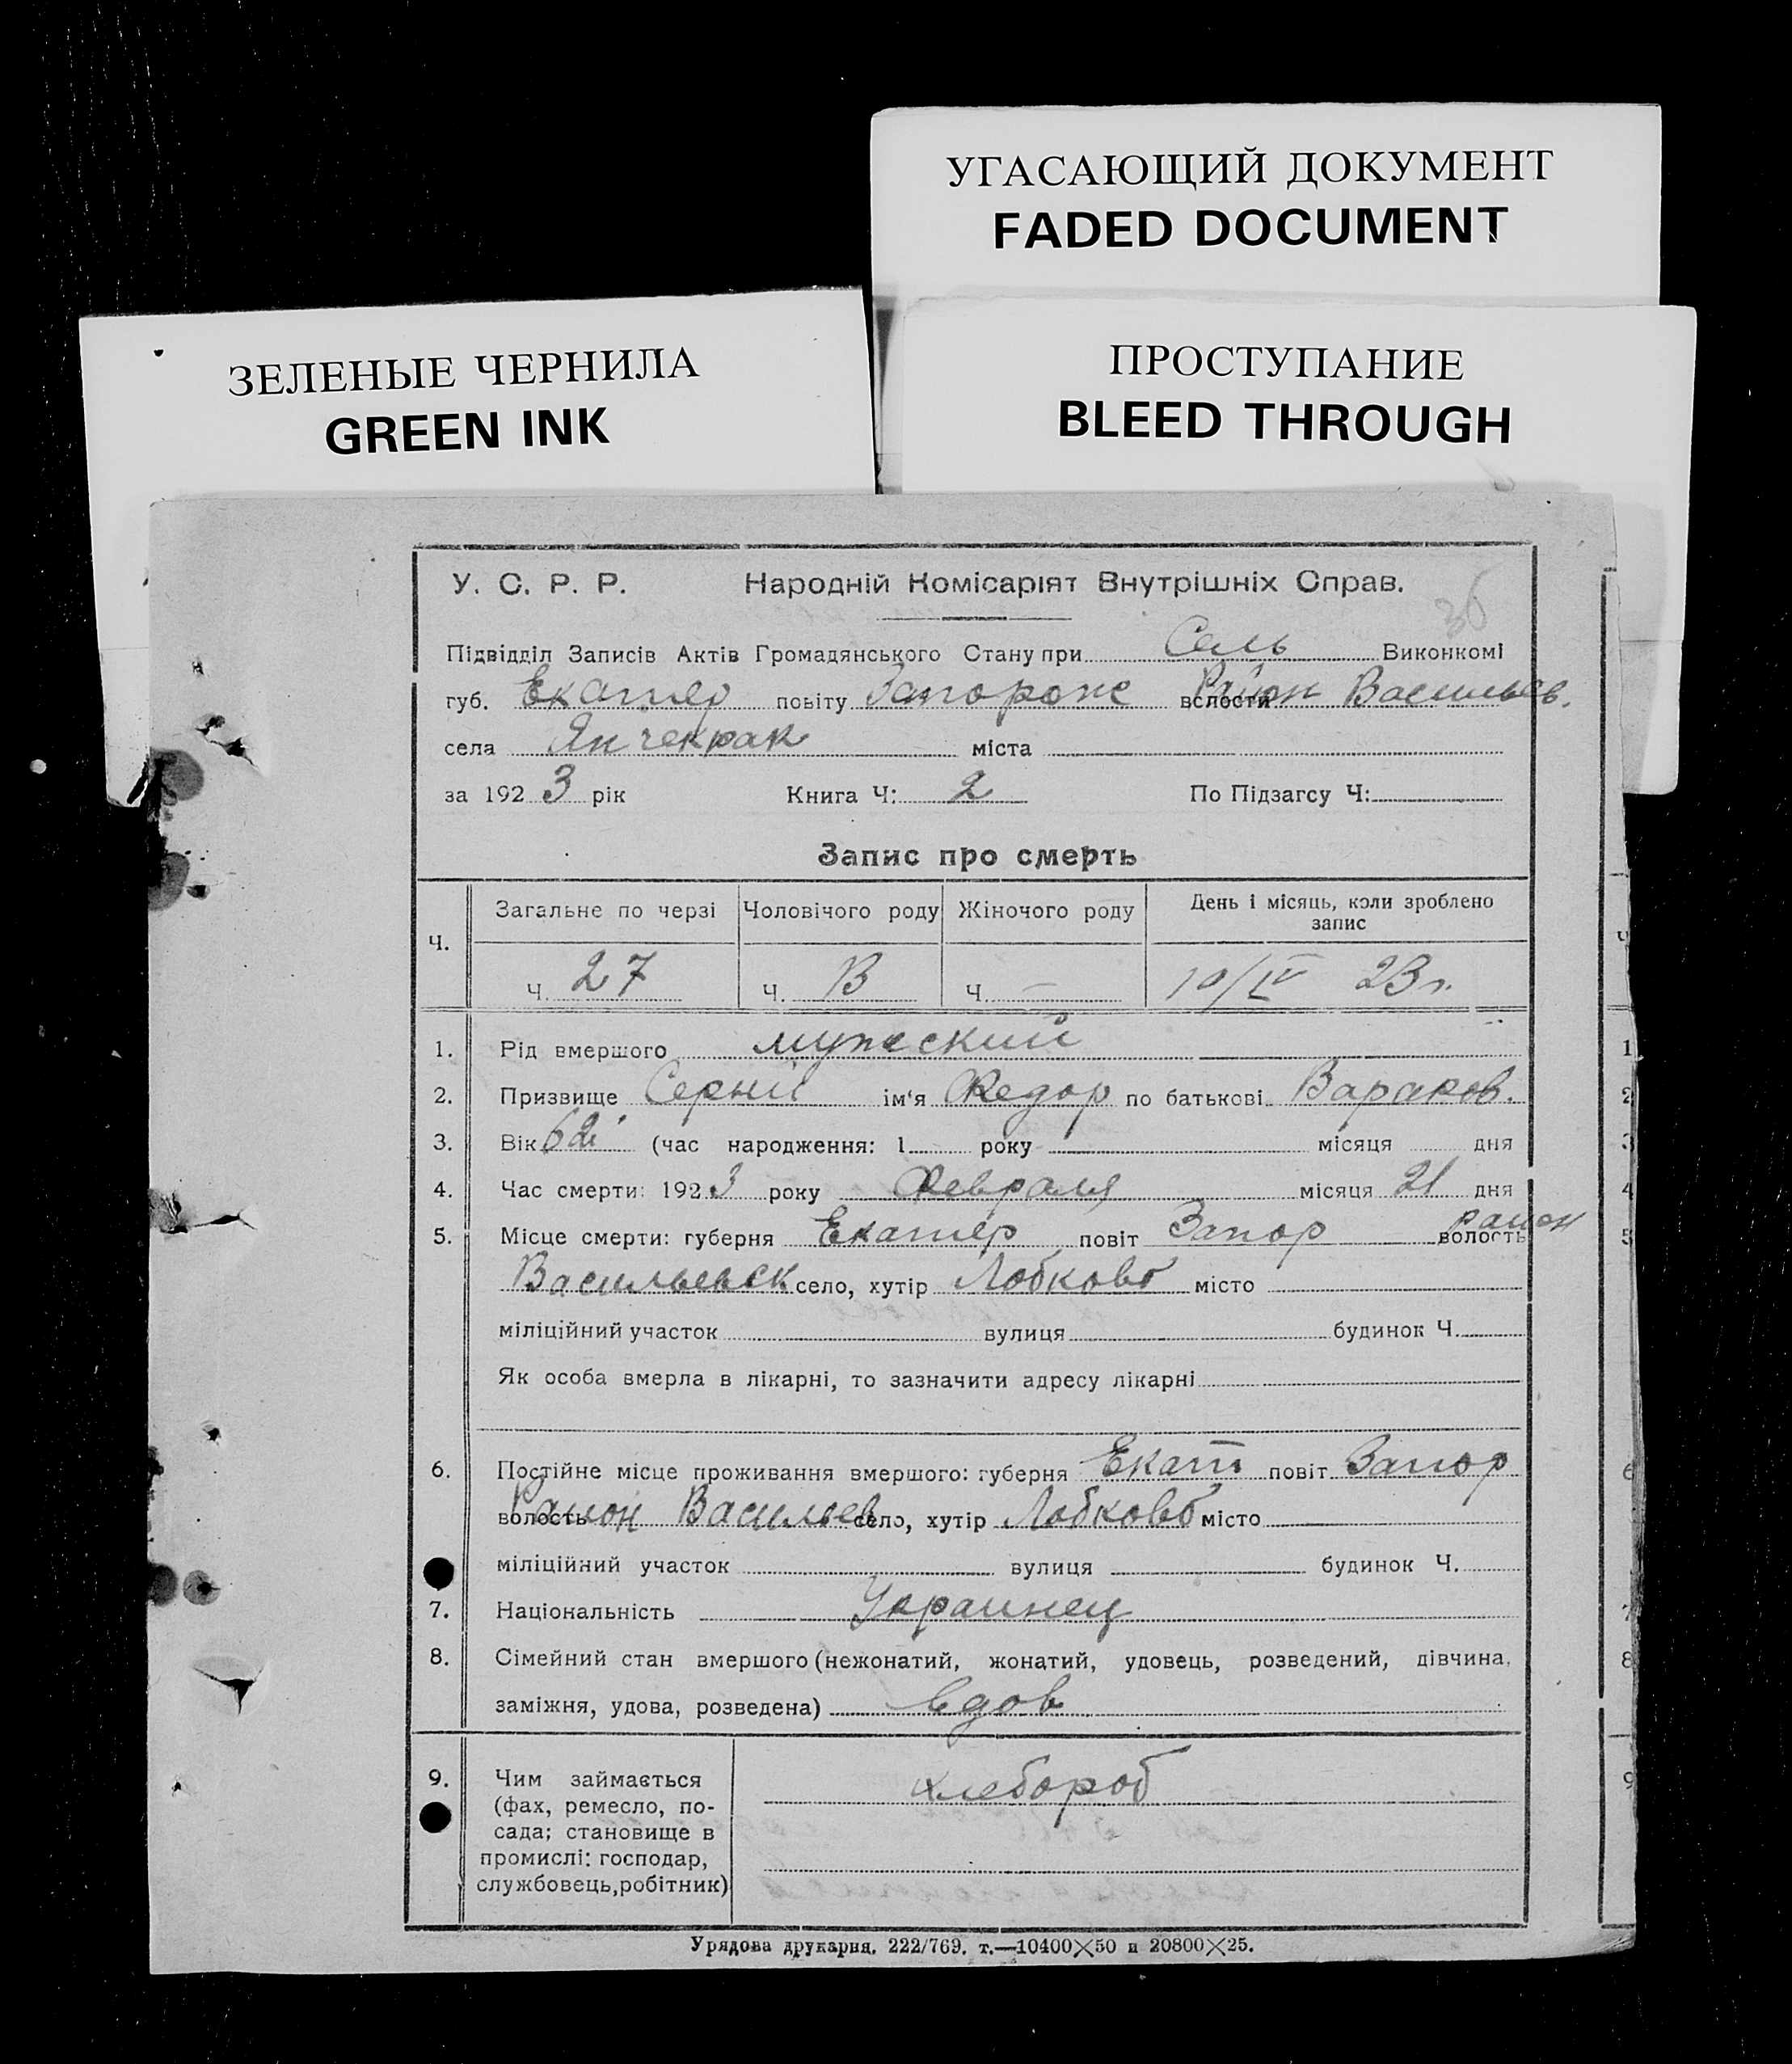 УГАСАЮЩИЙ ДОКУМЕНТ
FADED DOCUMENT
ЗЕЛЕНЫЕ ЧЕРНИЛА
GREEN INK
ПРОСТУПАНИЕ
BLEED THROUGH
36
У. С. Р. Р. Народній Комісаріят Внутрішніх Справ.
Підвідділ Записів Актів Громадянського Стану при Сель Виконкомі
губ. Екатер повіту Запорож волости Район Васильев.
села Янчекрак міста
за 1923 рік Книга Ч: 2 По Підзагсу Ч:
Запис про смерть
Ч. Загальне по черзі Чоловічого роду Жіночого роду День і місяць, коли зроблено запис
Ч. 27 Ч. 13 Ч. — 10/IV 23 г.
1. Рід вмершого мужеский
2. Призвище Серний ім'я Федор по батькові
3. Вік 62 (час народження: 1 року місяця дня
4. Час смерти: 1923 року Февраля місяця 21 дня
5. Місце смерти: губерня Екатер повіт Запор волость район
Васильевск село, хутір Лобково місто
міліційний участок вулиця будинок Ч.
Як особа вмерла в лікарні, то зазначити адресу лікарні
6. Постійне місце проживання вмершого: губерня Екат повіт Запор
волость Район Васильев село, хутір Лобково місто
міліційний участок вулиця будинок Ч.
7. Національність Украинец
8. Сімейний стан вмершого (нежонатий, жонатий, удовець, розведений, дівчина,
заміжня, удова, розведена) вдов
9. Чим займається хлебороб
(фах, ремесло, по-
сада; становище в
промислі: господар,
службовець, робітник)
Урядова друкарня. 222/769. т.—10400×50 и 20800×25.